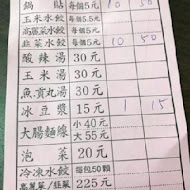 鍋 貼 每個5元 10 50
玉米水餃 每個5元
高麗菜水餃 每個5元
韭菜水餃 每個5元 10 50
酸辣湯 30元
玉米湯 30元
魚貢丸湯 30元
冰豆漿 15元 1 15
大腸麵線 小40元 大55元
泡 菜 20元
冷凍水餃 每包50顆
高麗菜/韭菜 225元